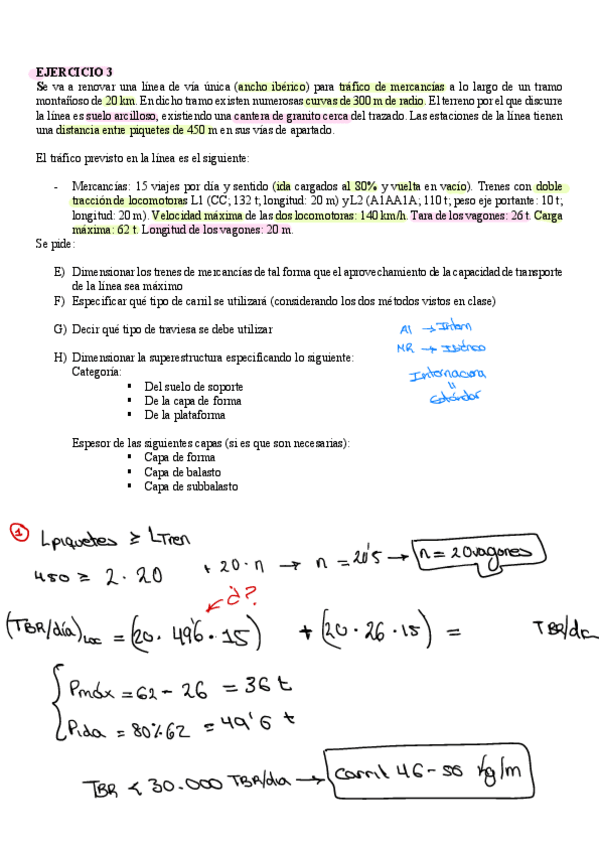 EJERCICIO 3
Se va a renovar una línea de vía única (ancho ibérico) para tráfico de mercancías a lo largo de un tramo
montañoso de 20 km. En dicho tramo existen numerosas curvas de 300 m de radio. El terreno por el que discurre
la línea es suelo arcilloso, existiendo una cantera de granito cerca del trazado. Las estaciones de la línea tienen
una distancia entre piquetes de 450 m en sus vías de apartado.
El tráfico previsto en la línea es el siguiente:
- Mercancías: 15 viajes por día y sentido (ida cargados al 80% y vuelta en vacío). Trenes con doble
tracción de locomotoras L1 (CC; 132 t; longitud: 20 m) y L2 (A1AA1A; 110 t; peso eje portante: 10 t;
longitud: 20 m). Velocidad máxima de las dos locomotoras: 140 km/h. Tara de los vagones: 26 t. Carga
máxima: 62 t. Longitud de los vagones: 20 m.
Se pide:
E) Dimensionar los trenes de mercancías de tal forma que el aprovechamiento de la capacidad de transporte
de la línea sea máximo
F) Especificar qué tipo de carril se utilizará (considerando los dos métodos vistos en clase)
G) Decir qué tipo de traviesa se debe utilizar
AI → Intern
MR → Ibérico
Internaciona
=
Estándar
H) Dimensionar la superestructura especificando lo siguiente:
Categoría:
▪ Del suelo de soporte
▪ De la capa de forma
▪ De la plataforma
Espesor de las siguientes capas (si es que son necesarias):
▪ Capa de forma
▪ Capa de balasto
▪ Capa de subbalasto
① Lpiquetes ≥ LTren
450 ≥ 2·20 + 20·n → n = 20'5 → n = 20 vagones
¿?
(TBR/día)LOC = (20·49'6·15) + (20·26·15) = TBR/día
Pmáx = 62 - 26 = 36 t
Pida = 80% 62 = 49'6 t
TBR < 30.000 TBR/día → Carril 46-50 kg/m